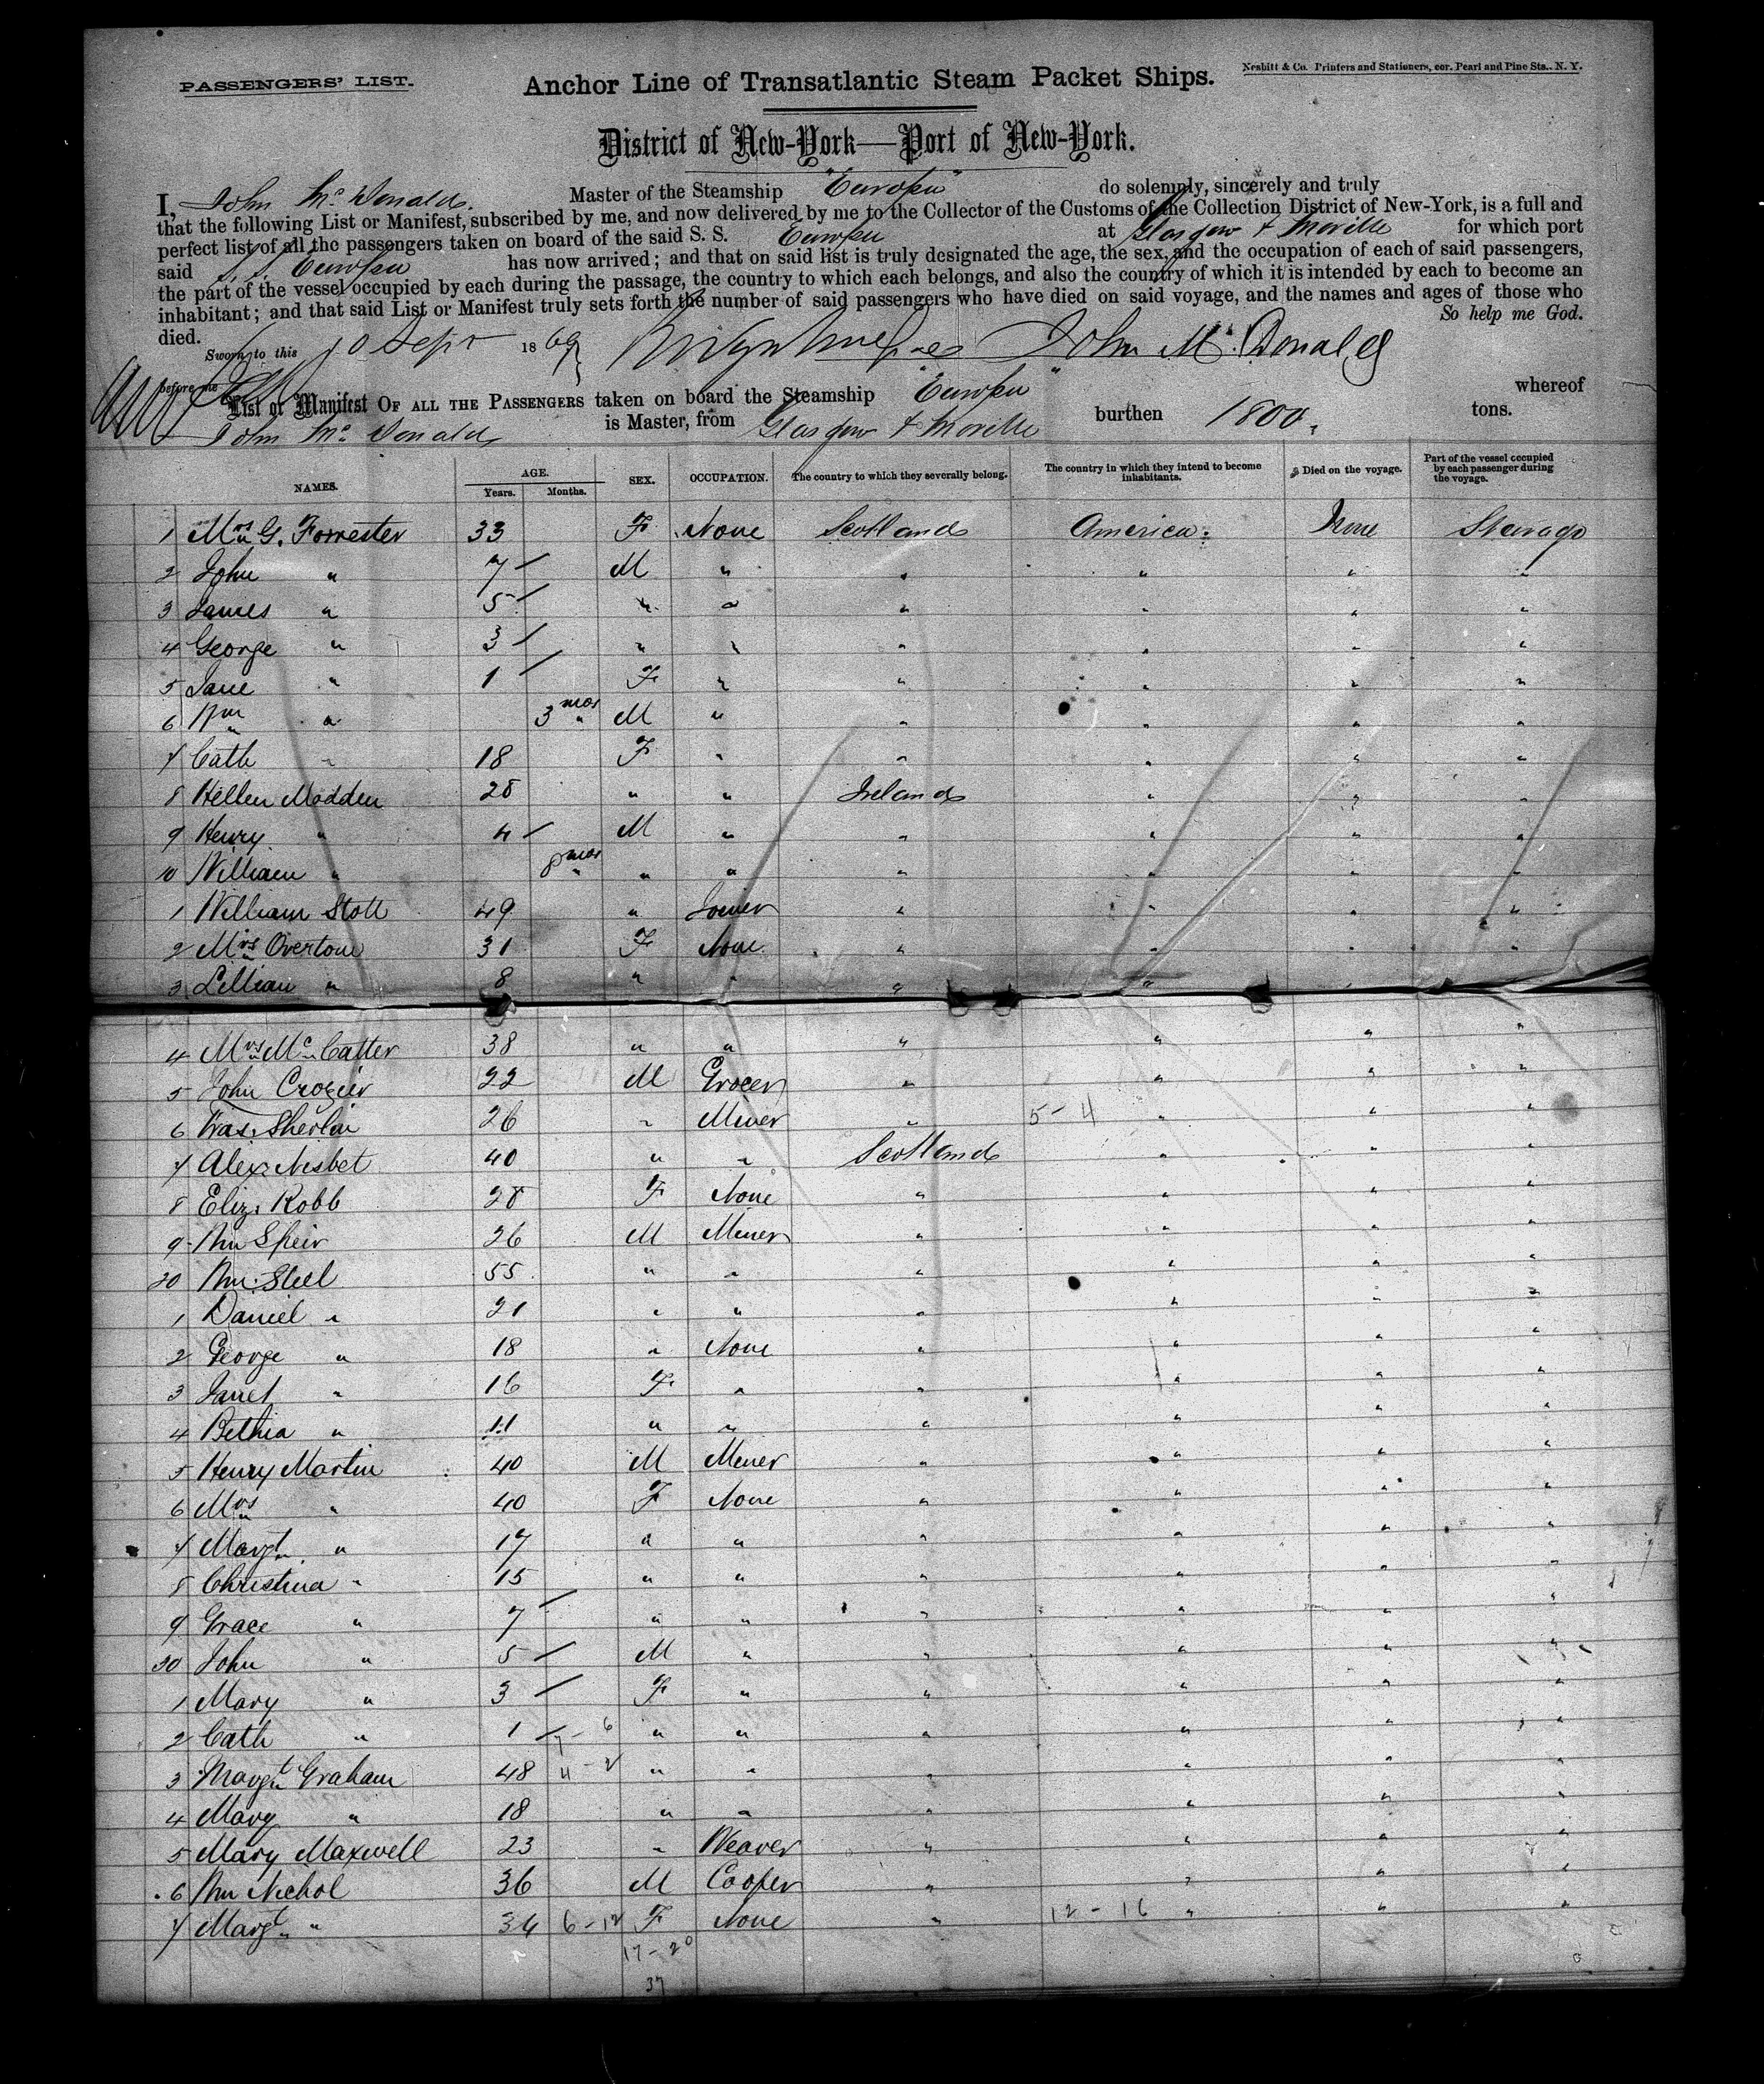 PASSENGERS' LIST.
Anchor Line of Transatlantic Steam Packet Ships.
Nesbitt & Co. Printers and Stationers, cor. Pearl and Pine Sts., N. Y.
District of New-York—Port of New-York.
I, John McDonald. Master of the Steamship "Europa" do solemnly, sincerely and truly
that the following List or Manifest, subscribed by me, and now delivered by me to the Collector of the Customs of the Collection District of New-York, is a full and
perfect list of all the passengers taken on board of the said S. S. Europa at Glasgow & Moville for which port
said S. S. Europa has now arrived; and that on said list is truly designated the age, the sex, and the occupation of each of said passengers,
the part of the vessel occupied by each during the passage, the country to which each belongs, and also the country of which it is intended by each to become an
inhabitant; and that said List or Manifest truly sets forth the number of said passengers who have died on said voyage, and the names and ages of those who
died. So help me God.
Sworn to this 10 Sept 1869 John McDonald
before me
List or Manifest OF ALL THE PASSENGERS taken on board the Steamship "Europa" whereof
John McDonald is Master, from Glasgow & Moville burthen 1800. tons.
NAMES. AGE. Years. Months. SEX. OCCUPATION. The country to which they severally belong. The country in which they intend to become inhabitants. Died on the voyage. Part of the vessel occupied by each passenger during the voyage.
1 Mrs G. Forrester 33 F None Scotland America. None Steerage
2 John " 7 M " " " " "
3 James " 5 " " " " " "
4 George " 3 " " " " " "
5 Jane " 1 F " " " " "
6 Wm " 3 mos M " " " " "
7 Cath " 18 F " " " " "
8 Hellen Madden 28 " " Ireland " " "
9 Henry " 4 M " " " " "
10 William " 8 mos " " " " " "
1 William Stott 49 " Joiner " " " "
2 Mrs Overtone 31 F None " " " "
3 Lillian " 8 " " " " " "
4 Mrs McCatter 38 " " " " " "
5 John Crozier 22 M Grocer " " " "
6 26 " Miner " 5-4 " " "
7 Alex. Nisbet 40 " " Scotland " " "
8 Eliz. Robb 28 F None " " " "
9 Wm Speir 26 M Miner " " " "
20 Wm. Steel 55 " " " " " "
1 Daniel " 21 " " " " " "
2 George " 18 " None " " " "
3 Janet " 16 F " " " " "
4 Bethia " 11 " " " " " "
5 Henry Martin 40 M Miner " " " "
6 Mrs " 40 F None " " " "
7 Margt " 17 " " " " " "
8 Christina " 15 " " " " " "
9 Grace " 7 " " " " " "
30 John " 5 M " " " " "
1 Mary " 3 F " " " " "
2 Cath " 1 7-6 " " " " " "
3 Margt Graham 48 4-2 " " " " " "
4 Mary " 18 " " " " " "
5 Mary Maxwell 23 " Weaver " " " "
6 Wm Nichol 36 M Cooper " " " "
7 Margt " 34 6-12 F None " 12-16 " " "
17-20
37